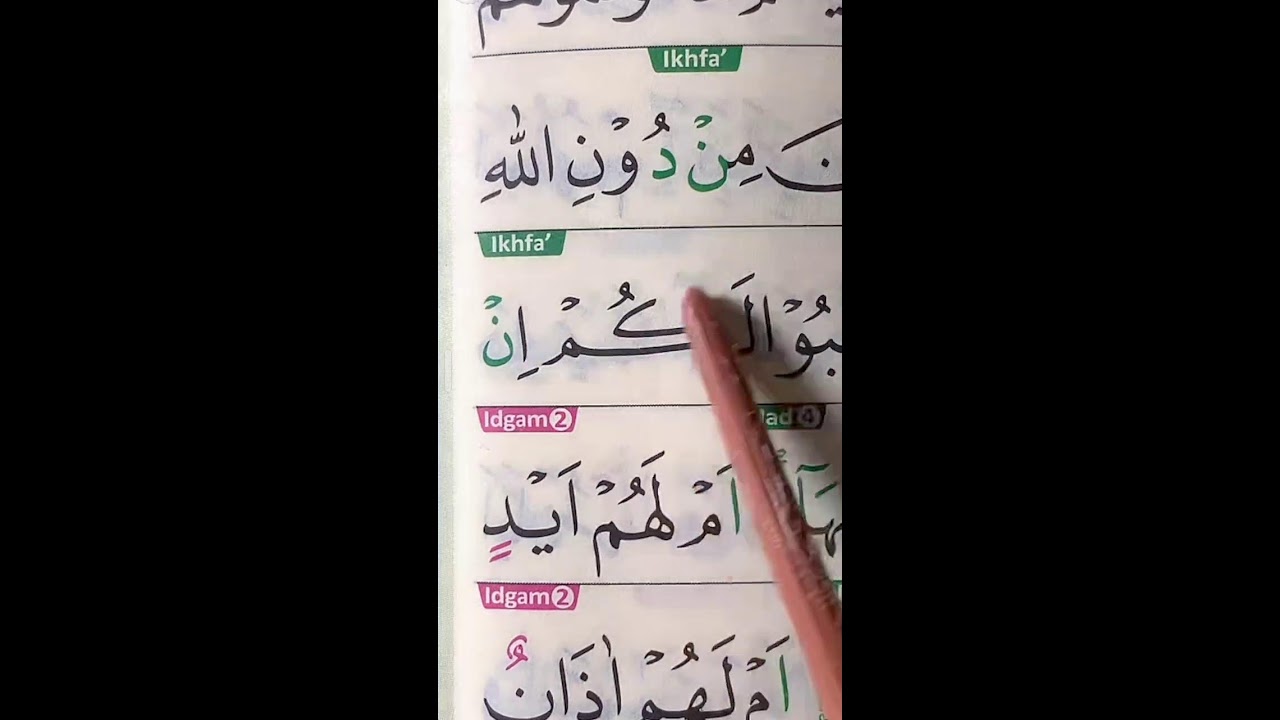 Ikhfa'
مِنْ دُوْنِ اللّٰهِ
Ikhfa'
لَكُمْ اِنْ
Idgam2
اَمْ لَهُمْ اَيْدٍ
Idgam2
اَمْ لَهُمْ اٰذَانٌ